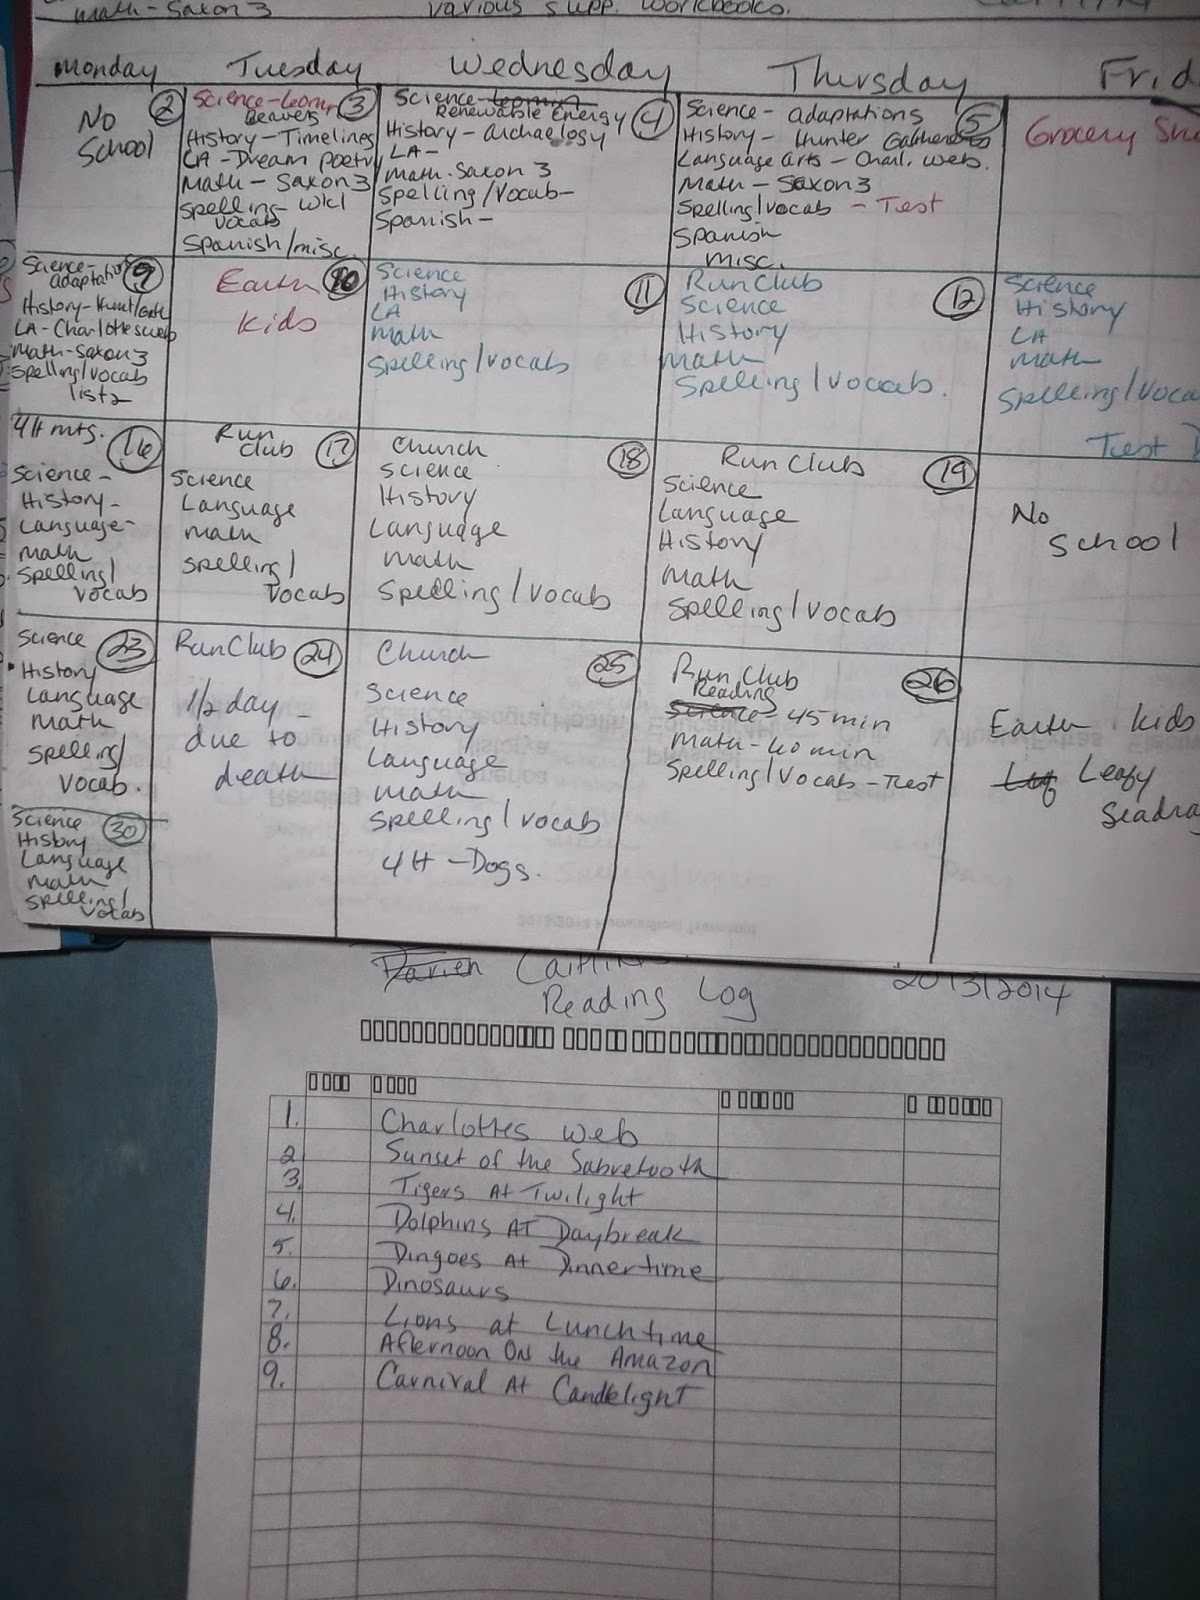 math - Saxon 3
various supp. workbooks.
Monday Tuesday Wednesday Thursday Frid
No
School
2
Science-
Beavers
3
History-Timelines
LA - Dream poetry
Math - Saxon 3
Spelling- wk1
vocab
Spanish/misc.
Science-
Renewable Energy
4
History - Archaelogy
LA -
math-Saxon 3
Spelling/Vocab-
Spanish-
Science - adaptations
5
History - Hunter Gatherers
Language arts - Charl. web.
Math - Saxon3
Spelling/vocab - Test
Spanish
misc.
Grocery Sh
Science-
adaptation
9
History-Hunt/Gath
LA-Charlottesweb
Math-Saxon3
Spelling/vocab
list2
Earth
Kids
10
Science
History
LA
math
Spelling/vocab
11
Run Club
Science
History
math
Spelling/vocab.
12
Science
History
LA
math
Spelling/Voca
Test
4H mtg.
16
Science-
History-
Language-
math
Spelling/
vocab
Run
Club
17
Science
Language
math
spelling/
vocab
Church
18
Science
History
Language
math
Spelling/vocab
Run Club
19
Science
Language
History
math
Spelling/vocab
No
School
Science
23
History
Language
math
Spelling/
vocab.
Run Club
24
1/2 day -
due to
death
Church
25
Science
History
Language
math
Spelling/vocab
4H - Dogs.
Run Club
26
Reading
Science - 45 min
math - 40 min
Spelling/Vocab - Test
Earth Kids
Leafy
Seadra
Science
30
History
Language
math
Spelling/
vocab
Darien Caitlin
Reading Log
2013/2014
1. Charlottes Web
2 Sunset of the Sabretooth
3. Tigers At Twilight
4. Dolphins AT Daybreak
5. Dingoes At Dinnertime
6. Dinosaurs
7. Lions at Lunchtime
8. Afternoon ON the Amazon
9. Carnival At Candlelight